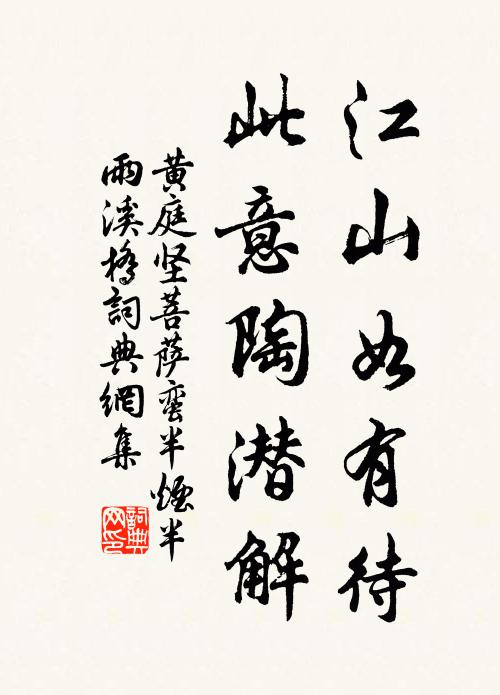 江山如有待
此意陶潜解
黄庭坚菩萨蛮半烟半
雨溪橋詞典網集
詞典网印